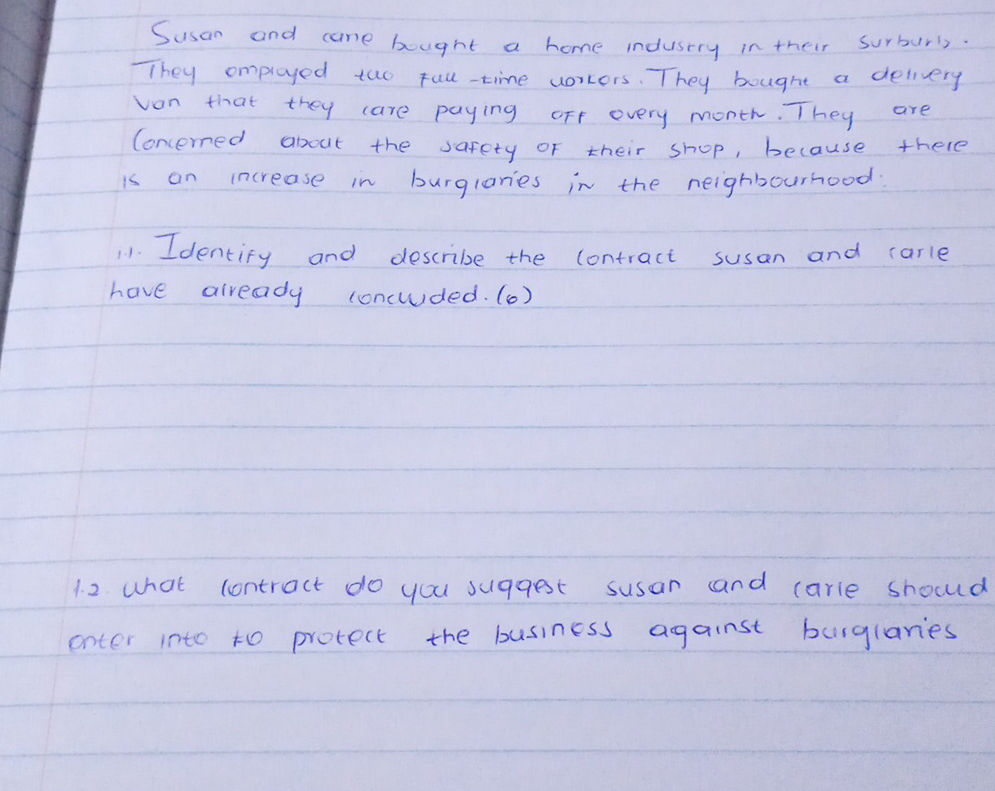 Susan and carie bought a home industry in their surburb.
They employed two full-time workers. They bought a delivery
van that they care paying off every month. They are
Concerned about the safety of their shop, because there
is an increase in burglaries in the neighbourhood.
1.1. Identify and describe the contract susan and carie
have already concluded. (6)
1.2 What contract do you suggest susan and carie should
enter into to protect the business against burglaries